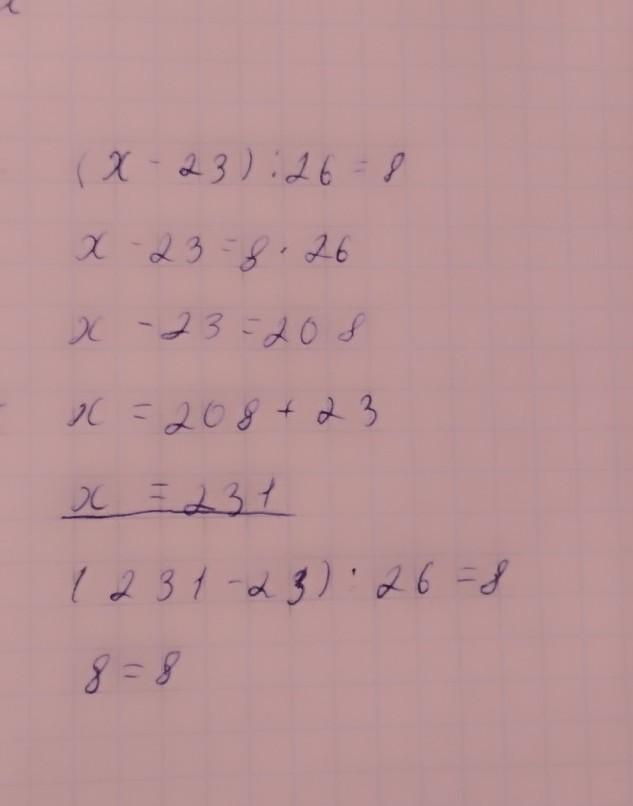 (x - 23) : 26 = 8
x - 23 = 8 · 26
x - 23 = 208
x = 208 + 23
x = 231
(231 - 23) : 26 = 8
8 = 8